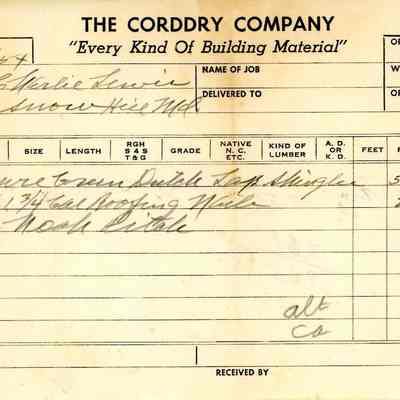 THE CORDDRY COMPANY
"Every Kind Of Building Material"
Charlie Lewis
Snow Hill Md
NAME OF JOB
DELIVERED TO
SIZE LENGTH RGH S4S T&G GRADE NATIVE N. C. ETC. KIND OF LUMBER A. D. OR K. D. FEET
Green Dutch Lap Shingles
1 3/4 Gal Roofing Nails
RECEIVED BY